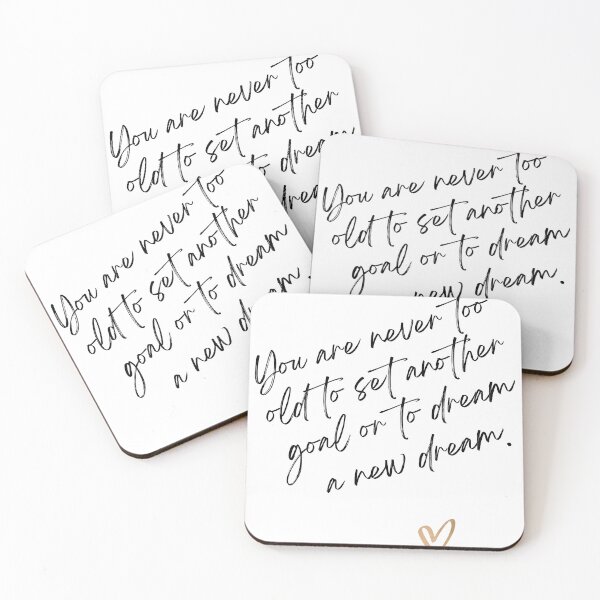 You are never too
old to set another
to dream
You are never too
old to set another
goal or to dream
new dream.
You are never too
old to set another
goal or to dream
a new dream.
You are never too
old to set another
goal or to dream
a new dream.